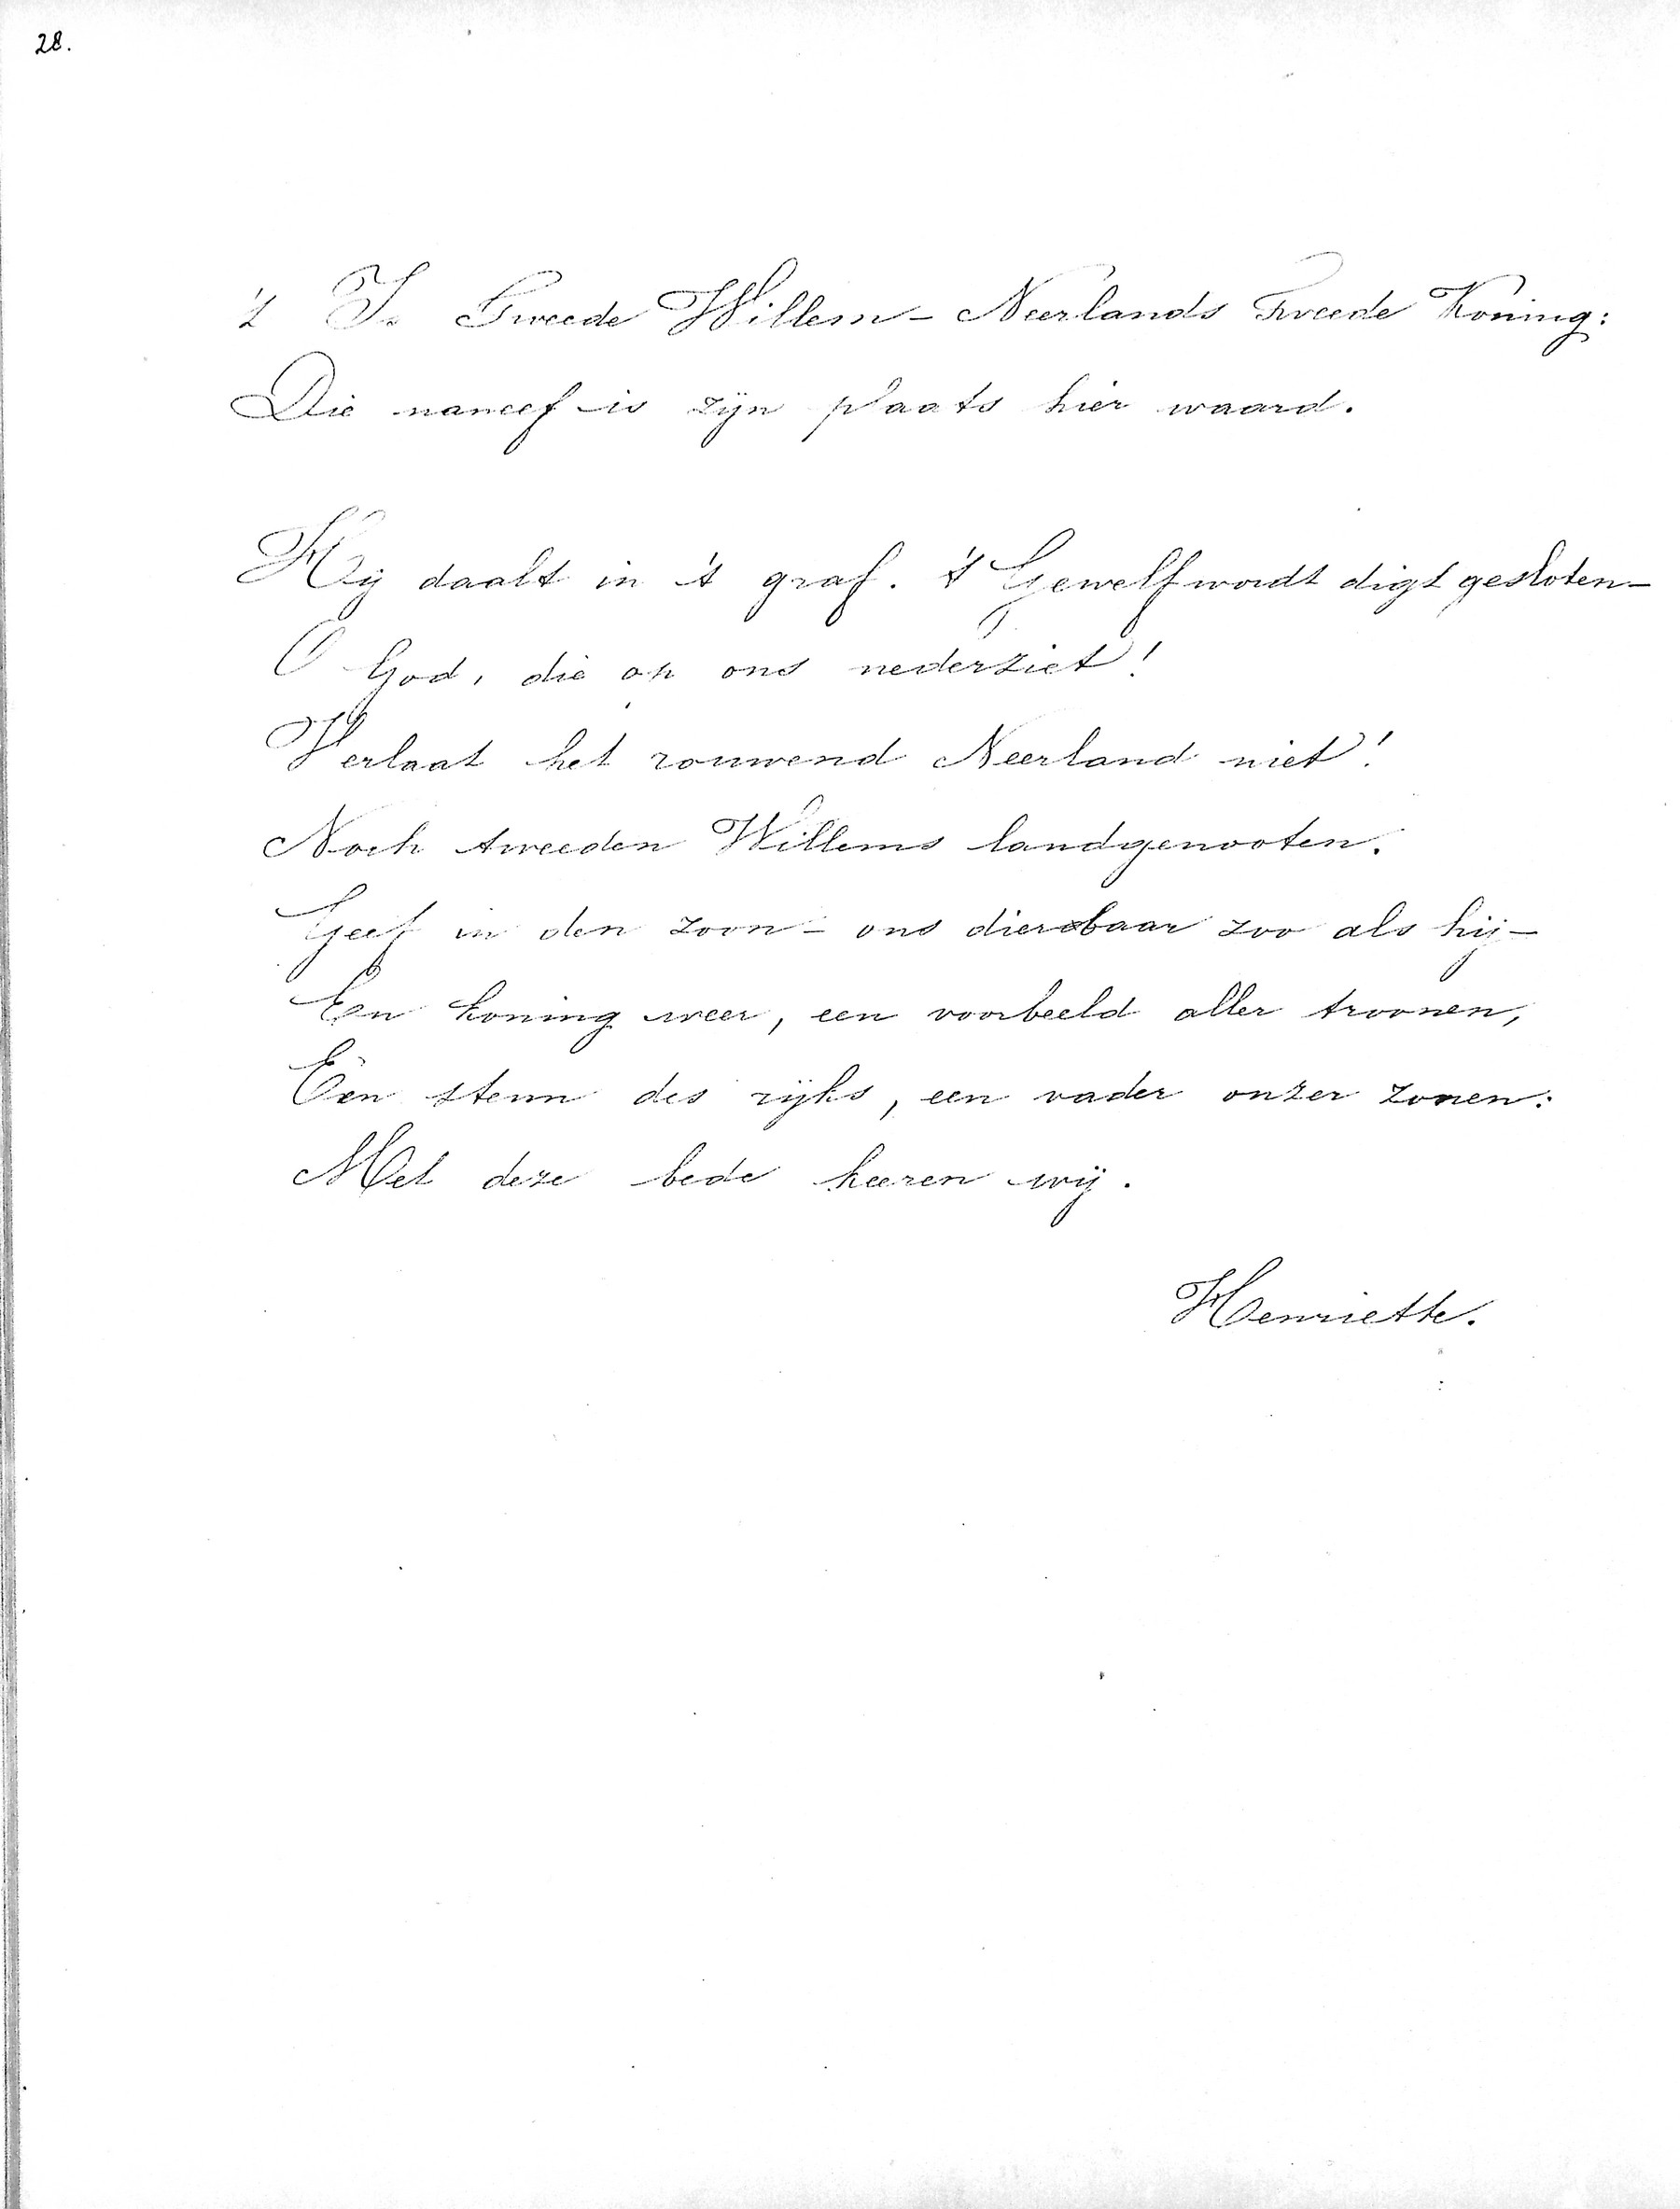 28.
't Is Tweede Willem - Neerlands Tweede Koning:
Die naneef is zijn plaats hier waard.
Hij daalt in 't graf. 't Gewelf wordt digt gesloten -
O God, die op ons nederziet!
Verlaat het rouwend Neerland niet!
Noch tweeden Willems landgenooten.
Geef in den zoon - ons dierbaar zoo als hij -
Een koning weer, een voorbeeld aller troonen,
Een steun des rijks, een vader onzer zonen:
Met deze bede keeren wij.
Henriette.